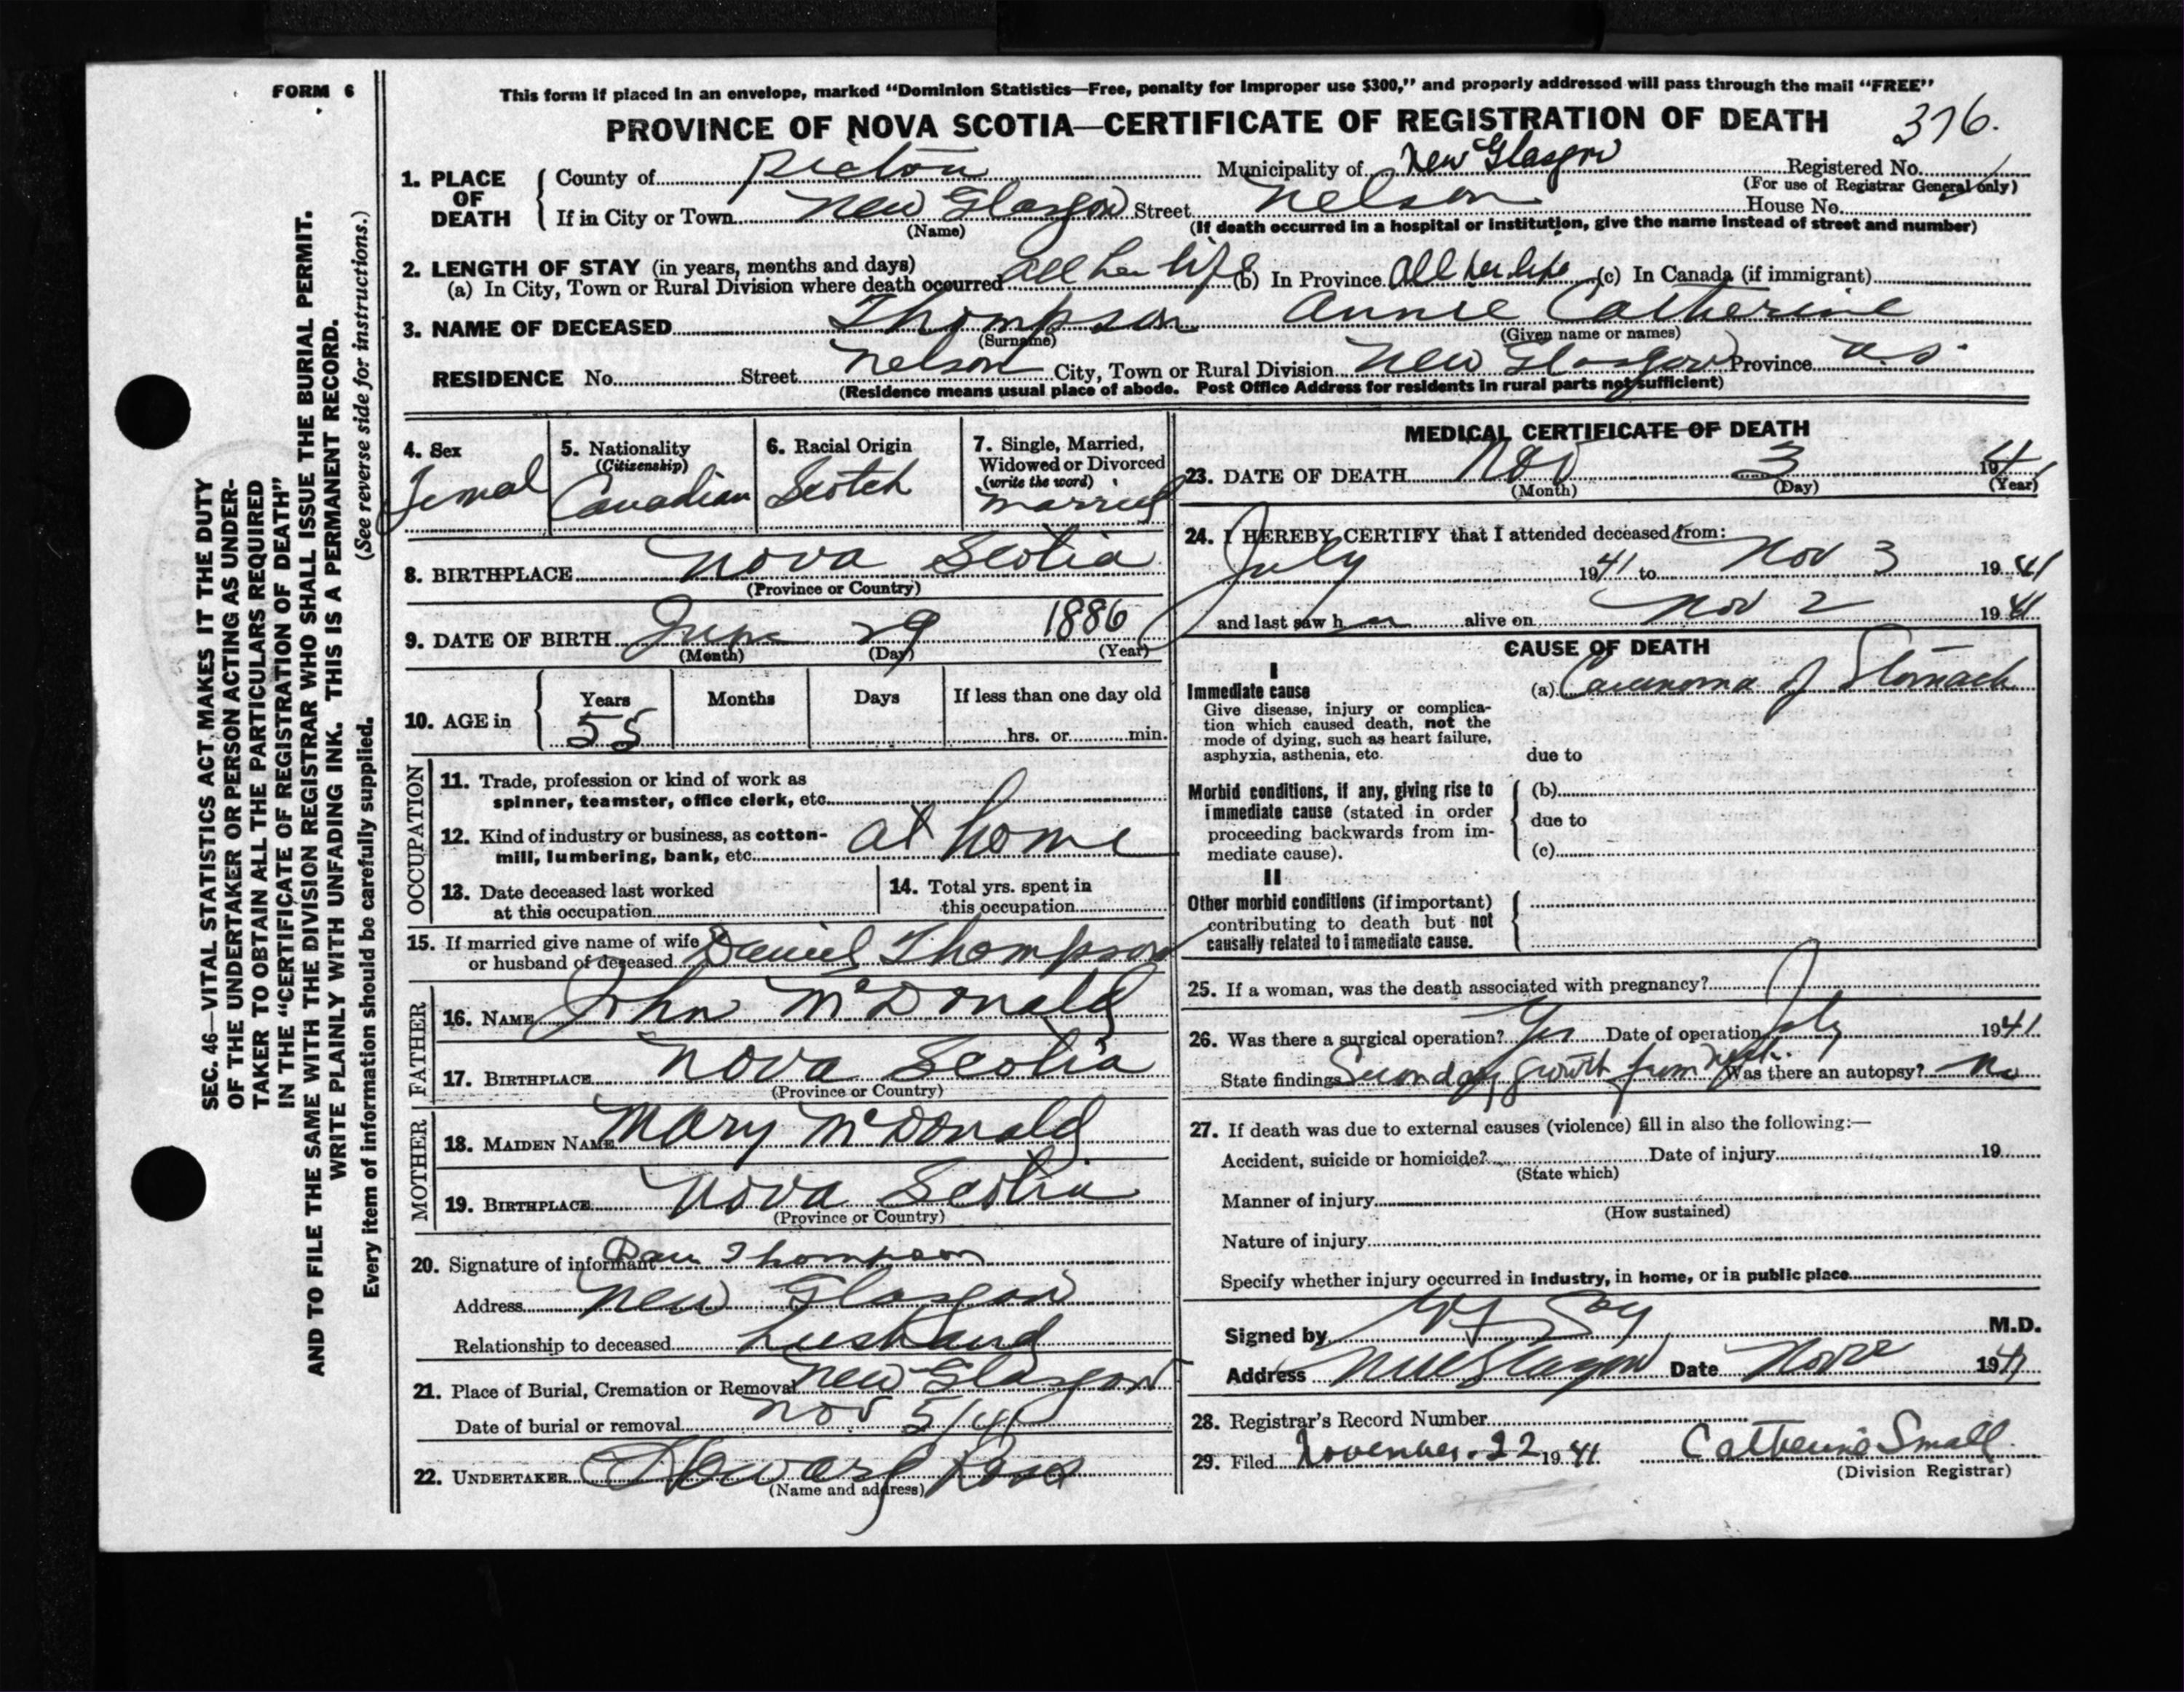 FORM 6
This form if placed in an envelope, marked "Dominion Statistics—Free, penalty for improper use $300," and properly addressed will pass through the mail "FREE"
PROVINCE OF NOVA SCOTIA—CERTIFICATE OF REGISTRATION OF DEATH 376.
1. PLACE OF DEATH
County of Pictou Municipality of New Glasgow Registered No.
(For use of Registrar General only)
If in City or Town New Glasgow Street Nelson House No.
(Name) (If death occurred in a hospital or institution, give the name instead of street and number)
2. LENGTH OF STAY (in years, months and days)
(a) In City, Town or Rural Division where death occurred all her life (b) In Province all her life (c) In Canada (if immigrant)
3. NAME OF DECEASED Thompson Annie Catherine
(Surname) (Given name or names)
RESIDENCE No. Street Nelson City, Town or Rural Division New Glasgow Province N.S.
(Residence means usual place of abode. Post Office Address for residents in rural parts not sufficient)
4. Sex
Femal
5. Nationality
(Citizenship)
Canadian
6. Racial Origin
Scotch
7. Single, Married,
Widowed or Divorced
(write the word)
married
8. BIRTHPLACE Nova Scotia
(Province or Country)
9. DATE OF BIRTH June 29 1886
(Month) (Day) (Year)
10. AGE in
Years Months Days If less than one day old
55 hrs. or min.
OCCUPATION
11. Trade, profession or kind of work as
spinner, teamster, office clerk, etc.
12. Kind of industry or business, as cotton-
mill, lumbering, bank, etc. at home
13. Date deceased last worked
at this occupation
14. Total yrs. spent in
this occupation
15. If married give name of wife
or husband of deceased Daniel Thompson
FATHER
16. NAME John McDonald
17. BIRTHPLACE Nova Scotia
(Province or Country)
MOTHER
18. MAIDEN NAME Mary McDonald
19. BIRTHPLACE Nova Scotia
(Province or Country)
20. Signature of informant Dan Thompson
Address New Glasgow
Relationship to deceased husband
21. Place of Burial, Cremation or Removal New Glasgow
Date of burial or removal Nov 5/41
22. UNDERTAKER Howard Ross
(Name and address)
MEDICAL CERTIFICATE OF DEATH
23. DATE OF DEATH Nov 3 1941
(Month) (Day) (Year)
24. I HEREBY CERTIFY that I attended deceased from:
July 1941 to Nov 3 1941
and last saw her alive on Nov 2 1941
CAUSE OF DEATH
I
Immediate cause
Give disease, injury or complica-
tion which caused death, not the
mode of dying, such as heart failure,
asphyxia, asthenia, etc.
(a) Carcinoma of Stomach
due to
Morbid conditions, if any, giving rise to
immediate cause (stated in order
proceeding backwards from im-
mediate cause).
(b)
due to
(c)
II
Other morbid conditions (if important)
contributing to death but not
causally related to immediate cause.
25. If a woman, was the death associated with pregnancy?
26. Was there a surgical operation? Yes Date of operation July 1941
State findings Secondary growth from Was there an autopsy? No
27. If death was due to external causes (violence) fill in also the following:—
Accident, suicide or homicide? Date of injury 19
(State which)
Manner of injury
(How sustained)
Nature of injury
Specify whether injury occurred in industry, in home, or in public place
Signed by M.D.
Address New Glasgow Date Nov 1941
28. Registrar's Record Number
29. Filed November 22 1941 Catherine Small
(Division Registrar)
SEC. 46—VITAL STATISTICS ACT MAKES IT THE DUTY
OF THE UNDERTAKER OR PERSON ACTING AS UNDER-
TAKER TO OBTAIN ALL THE PARTICULARS REQUIRED
IN THE "CERTIFICATE OF REGISTRATION OF DEATH"
AND TO FILE THE SAME WITH THE DIVISION REGISTRAR WHO SHALL ISSUE THE BURIAL PERMIT.
WRITE PLAINLY WITH UNFADING INK. THIS IS A PERMANENT RECORD.
(See reverse side for instructions.)
Every item of information should be carefully supplied.